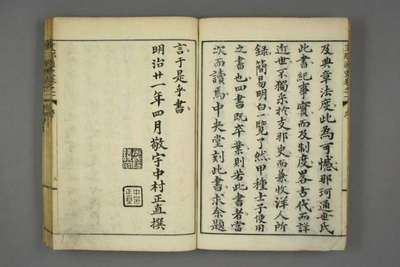 及典章法度此為可憾那珂通世氏
此書紀事實而及制度畧古代而詳
近世不獨采於支那史而兼收洋人所
錄簡易明白一覽了然甲種士子便用
之書也四書既卒業則若此書者當
次而讀焉中央堂刻此書求余題
言于是乎書
明治廿一年四月敬宇中村正直撰